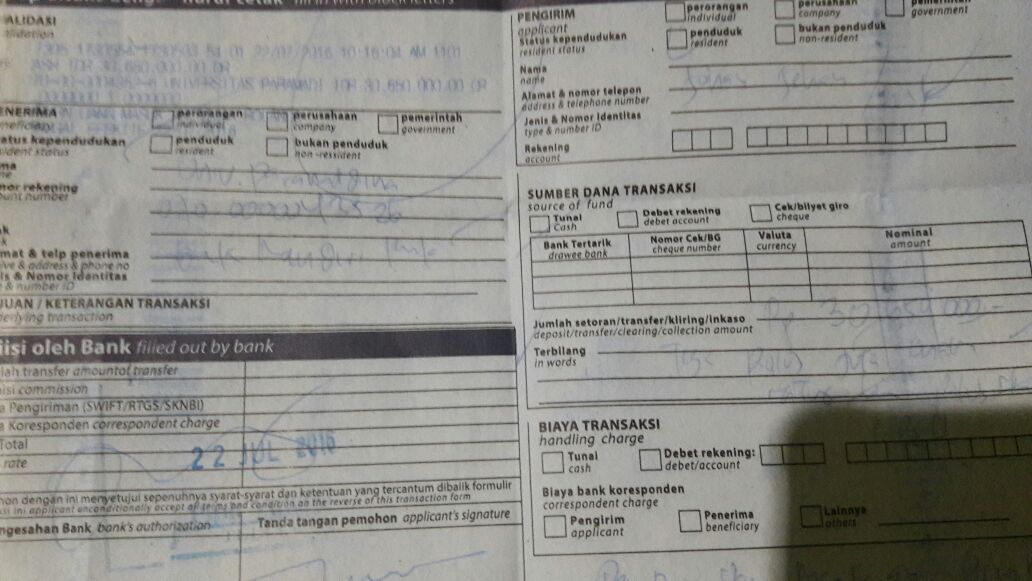 fill in with block letters
ALIDASI
lidation
22/07/2016 10:16:04 AM
IDR 30,650,000.00 CR
UNIVERSITAS PARAMADI IDR 30,650,000.00 CR
ENERIMA
neficiary
perorangan
individual
perusahaan
company
pemerintah
government
atus kependudukan
sident status
penduduk
resident
bukan penduduk
non-ressident
ma
Univ. Paramadina
mor rekening
ount number
mat & telp penerima
ive & address & phone no
is & Nomor Identitas
e & number ID
JUAN / KETERANGAN TRANSAKSI
derlying transaction
iisi oleh Bank filled out by bank
lah transfer amountof transfer
isi commission
a Pengiriman (SWIFT/RTGS/SKNBI)
a Koresponden correspondent charge
Total
rate
22 JUL 2016
hon dengan ini menyetujui sepenuhnya syarat-syarat dan ketentuan yang tercantum dibalik formulir
ini applicant unconditionally accept all terms and condition on the reverse of this transaction form
ngesahan Bank bank's authorization
Tanda tangan pemohon applicant's signature
PENGIRIM
applicant
perorangan
individual
perusahaan
company
pemerintah
government
Status kependudukan
resident status
penduduk
resident
bukan penduduk
non-resident
Nama
name
Alamat & nomor telepon
address & telephone number
Jenis & Nomor Identitas
type & number ID
Rekening
account
SUMBER DANA TRANSAKSI
source of fund
Tunai
Cash
Debet rekening
debet account
Cek/bilyet giro
cheque
Bank Tertarik
drawee bank
Nomor Cek/BG
cheque number
Valuta
currency
Nominal
amount
Jumlah setoran/transfer/kliring/inkaso
deposit/transfer/clearing/collection amount
Rp 30.650.000.-
Terbilang
in words
Tiga Puluh Juta Enam
BIAYA TRANSAKSI
handling charge
Tunai
cash
Debet rekening:
debet/account
Biaya bank koresponden
correspondent charge
Pengirim
applicant
Penerima
beneficiary
Lainnya
others